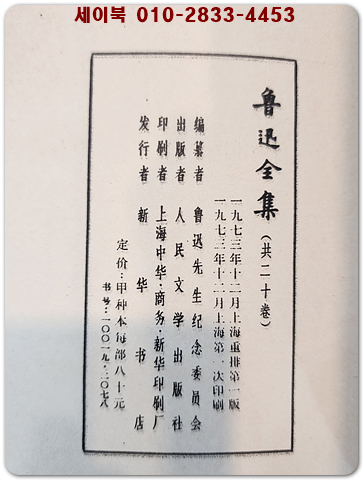 세이북 010-2833-4453
鲁迅全集(共二十卷)
一九七三年十二月上海重排第一版
一九七三年十二月上海第一次印刷
编纂者 鲁迅先生纪念委员会
出版者 人民文学出版社
印刷者 上海中华·商务·新华印刷厂
发行者 新华书店
定价:甲种本每部八十元
书号:一〇〇一九·二〇七八